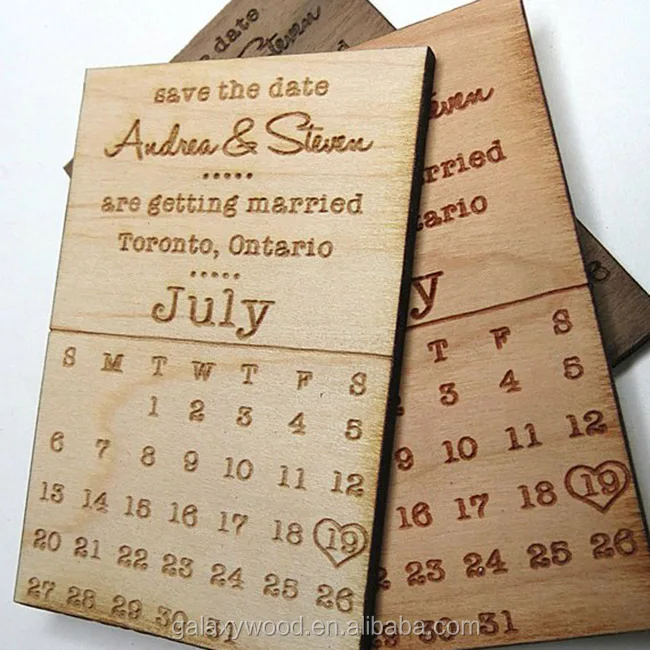 save the date
Andrea & Steven
are getting married
Toronto, Ontario
July
S M T W T F S
1 2 3 4 5
6 7 8 9 10 11 12
13 14 15 16 17 18 19
20 21 22 23 24 25 26
27 28 29 30 31
date
Steven
rried
tario
y
T F S
3 4 5
9 10 11 12
16 17 18 19
22 23 24 25 26
29 30 31
galaxywood.en.alibaba.com